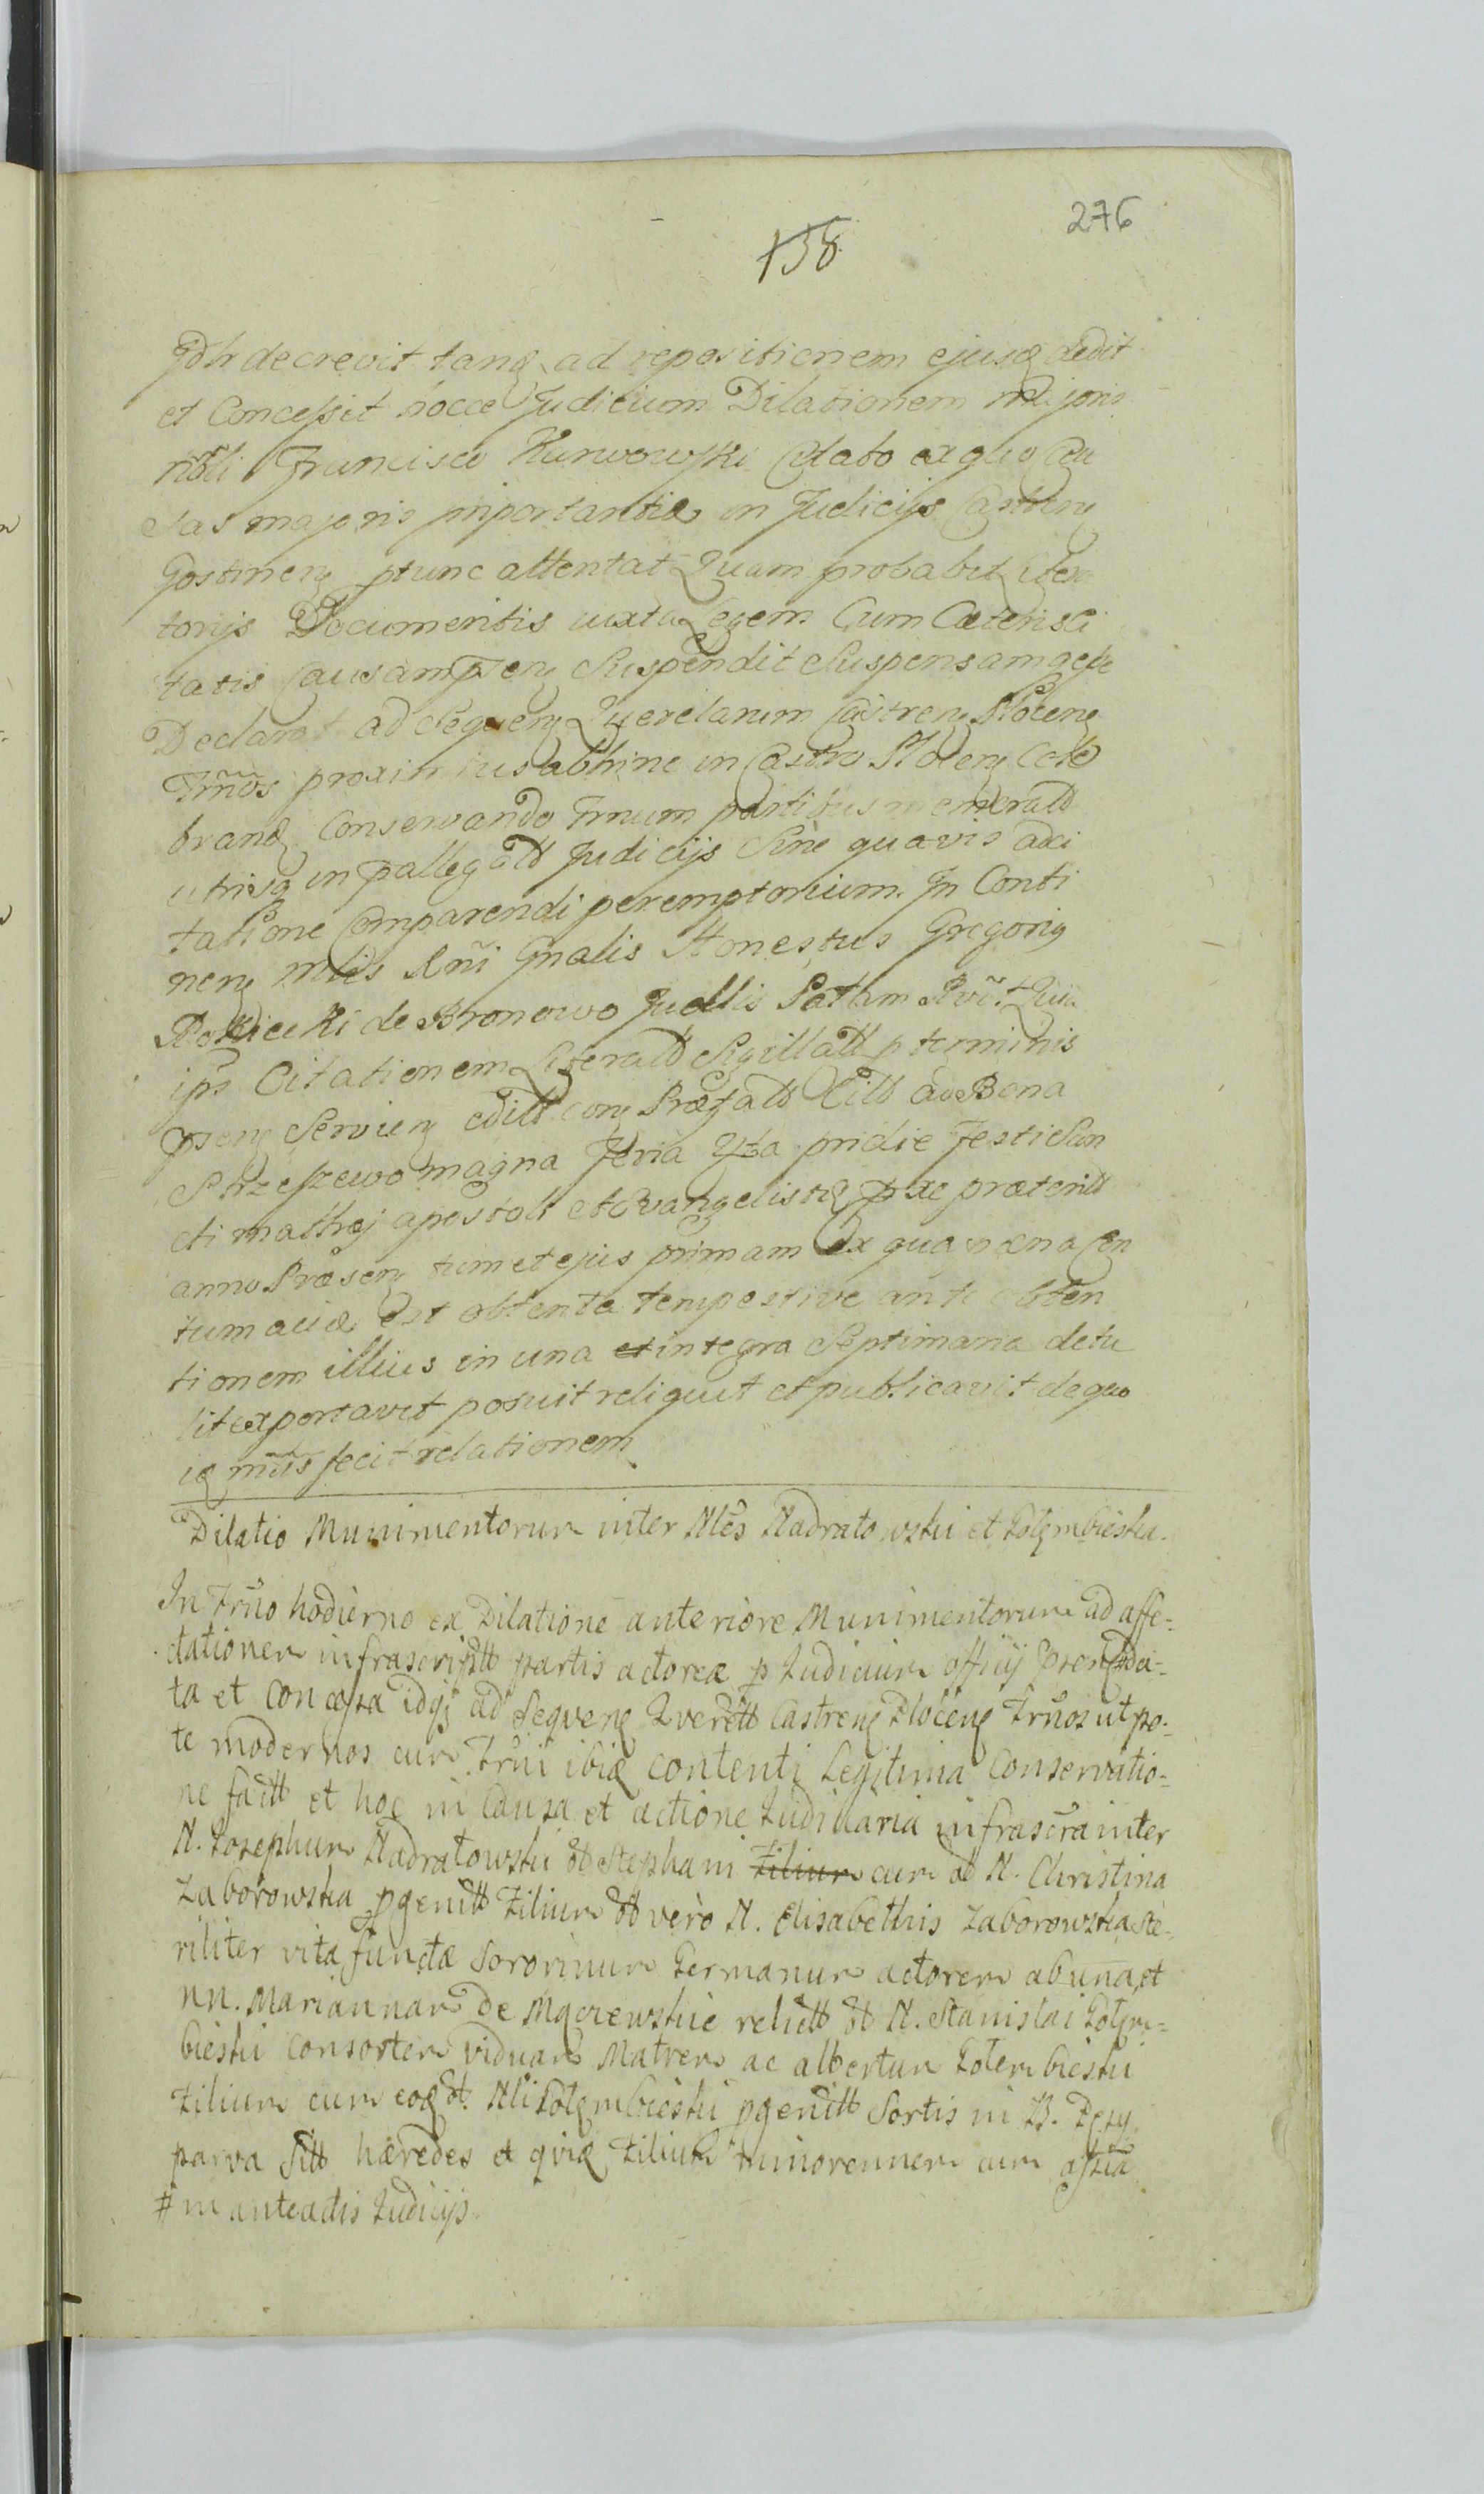 276
138
decrevit tanq ad repositionem ejusq dedit
et Concessit hocce Judicium Dilationem majoris
nobli Francisco Karwowski Citato ex quo Ca
sas majoris importantiæ in Judicijs Castren
Gostinen ptunc attentat Quam probabit litera
torijs Documentis iuxta Legem Cum Cæteris Ci
tatis Causam psen Suspendit Suspensam qe esse
Declarat ad Sequen Querelarum Castren Plocen
Trnos proximius abhinc in Castro Plocen Cele
brand Conservando Trnum partibus memoratt
utrisq in pallegatt Judicijs Sine quavis adci
tatione Comparendi peremptorium. In Conti
nen mtlis Rni Gnalis Honestus Gregorig
Rokicki de Bronowo
ips Citationem Literatt Sigillatt p terminis
psen Servien editt con Præfatt Citt ad Bona
Strzeszewo magna Feria 4ta pridie Festi San
cti mathæj apostoli et Evangelistæ pxe præteritt
anno Præsen tum et ejus primam Ex qua pæna Con
tumaciæ est obtenta tempestive ante obten
tionem illius in una et integra Septimana detu
lit exportavit posuit reliquit et publicavit de quo
iq mtis fecit relationem
Dilatio Munimentorum inter Nles Nadratowski et Gołembieska.
In Trno hodierno ex Dilatione anteriore Munimentorum ad affe-
ctationem infrascriptt partis actoreæ p Judicium officij psen da-
ta et concessa idq ad Sequenq Querett Castrenq Plocenq Trnos utpo-
te modernos cum Trni ibiq contenti Legitima Conservatio-
ne factt et hoc in Causa et actione Judiciaria infrascra inter
N. Josephum Nadratowski ott Stephani Filium cum ott N. Christina
Zaborowska pgenitt Filium ott vero N. Elisabethis Zaborowska ste-
riliter vita functæ Sororinum Germanum actorem ab una et
NN. Mariannam de Mgowskie relictt ott N. Stanislai Gołem-
bieski Consortem viduam Matrem ac Albertum Gołembieski
Filium cum eoq ott Nli Gołembieski pgenitt Sortis in B.
parva Sitt hæredes et quiq Filium minorennem cum
# in anteactis Judicijs.